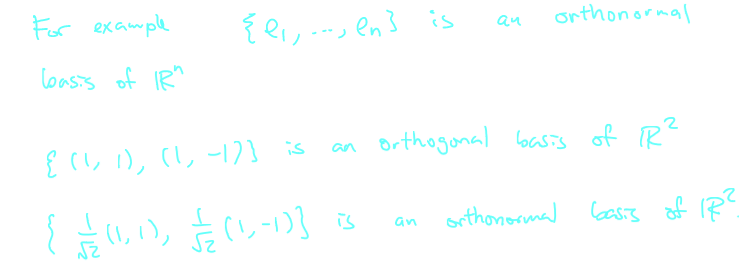 For example {e₁, ..., eₙ} is an orthonormal
basis of ℝⁿ
{(1, 1), (1, -1)} is an orthogonal basis of ℝ²
{ 1/√2 (1, 1), 1/√2 (1, -1)} is an orthonormal basis of ℝ².